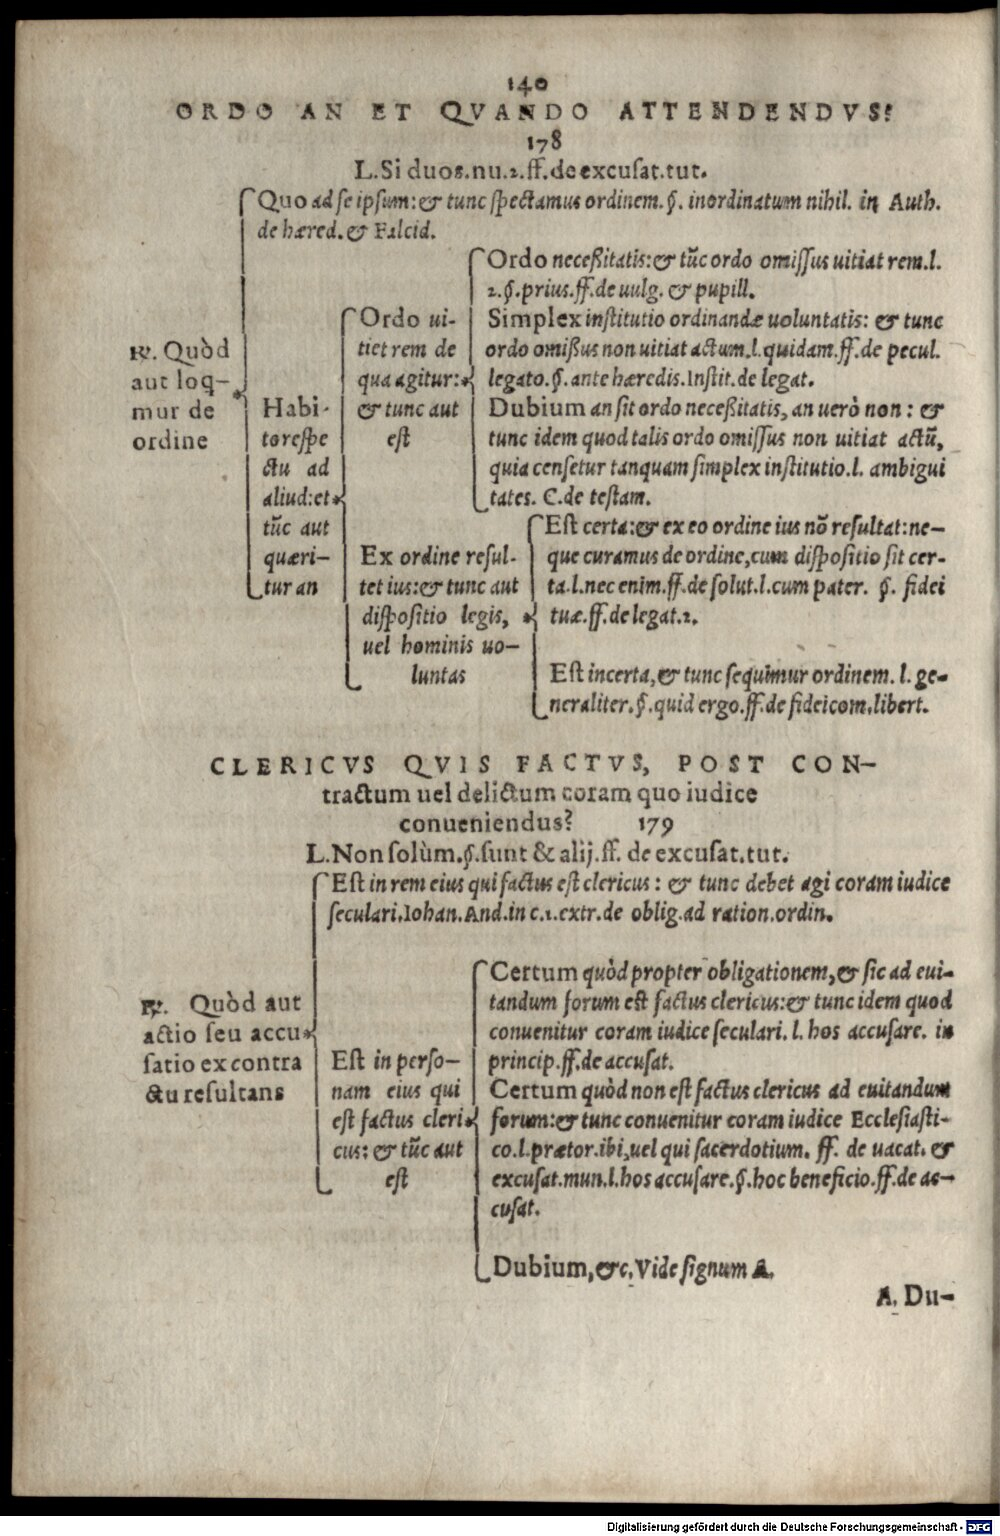 140
ORDO AN ET QVANDO ATTENDENDVS?
178
L.Si duos.nu.2.ff.de excusat.tut.
℞. Quòd
aut loq-
mur de
ordine
Quo ad se ipsum:& tunc spectamus ordinem.§. inordinatum nihil. in Auth.
de hæred.& Falcid.
Habi-
to respe
ctu ad
aliud:et
tũc aut
quæri-
tur an
Ordo ui-
tiet rem de
qua agitur:
& tunc aut
est
Ordo necessitatis:& tũc ordo omissus uitiat rem.l.
2.§.prius.ff.de uulg. & pupill.
Simplex institutio ordinandæ uoluntatis: & tunc
ordo omissus non uitiat actum.l.quidam.ff.de pecul.
legato.§.ante hæredis.Instit.de legat.
Dubium an sit ordo necessitatis, an uerò non: &
tunc idem quod talis ordo omissus non uitiat actũ,
quia censetur tanquam simplex institutio.l. ambigui
tates. C.de testam.
Ex ordine resul-
tet ius:& tunc aut
dispositio legis,
uel hominis uo-
luntas
Est certa:& ex eo ordine ius nõ resultat:ne-
que curamus de ordine,cum dispositio sit cer-
ta.l.nec enim.ff.de solut.l.cum pater. §. fidei
tuæ.ff.de legat.2.
Est incerta,& tunc sequimur ordinem. l. ge-
neraliter.§.quid ergo.ff.de fideicom.libert.
CLERICVS QVIS FACTVS, POST CON-
tractum uel delictum coram quo iudice
conueniendus? 179
L.Non solùm.§.sunt & alij.ff. de excusat.tut.
℞. Quòd aut
actio seu accu
satio ex contra
ctu resultans
Est in rem eius qui factus est clericus: & tunc debet agi coram iudice
seculari.Iohan.And.in c.1.extr.de oblig.ad ration.ordin.
Est in perso-
nam eius qui
est factus cleri
cus: & tũc aut
est
Certum quòd propter obligationem,& sic ad eui-
tandum forum est factus clericus:& tunc idem quod
conuenitur coram iudice seculari. l. hos accusare. in
princip.ff.de accusat.
Certum quòd non est factus clericus ad euitandum
forum:& tunc conuenitur coram iudice Ecclesiasti-
co.l.prætor.ibi,uel qui sacerdotium. ff. de uacat. &
excusat.mun.l.hos accusare.§.hoc beneficio.ff.de ac-
cusat.
Dubium,&c.Vide signum A.
A. Du-
Digitalisierung gefördert durch die Deutsche Forschungsgemeinschaft - DFG